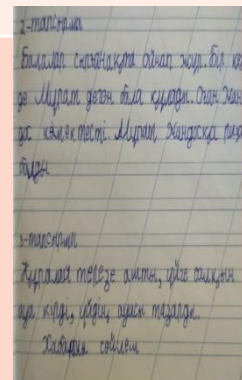 2-тапсырма
Балалар сырғанақта ойнап жүр. Бір кез
де Мұрат деген бала құлады. Оған Жан
дос көмектесті. Мұрат Жандосқа риза
болды.
3-тапсырма
Құралай терезе ашты, үйге салқын
ауа кірді, үйдің ауасы тазарды.
Хабарлы сөйлем